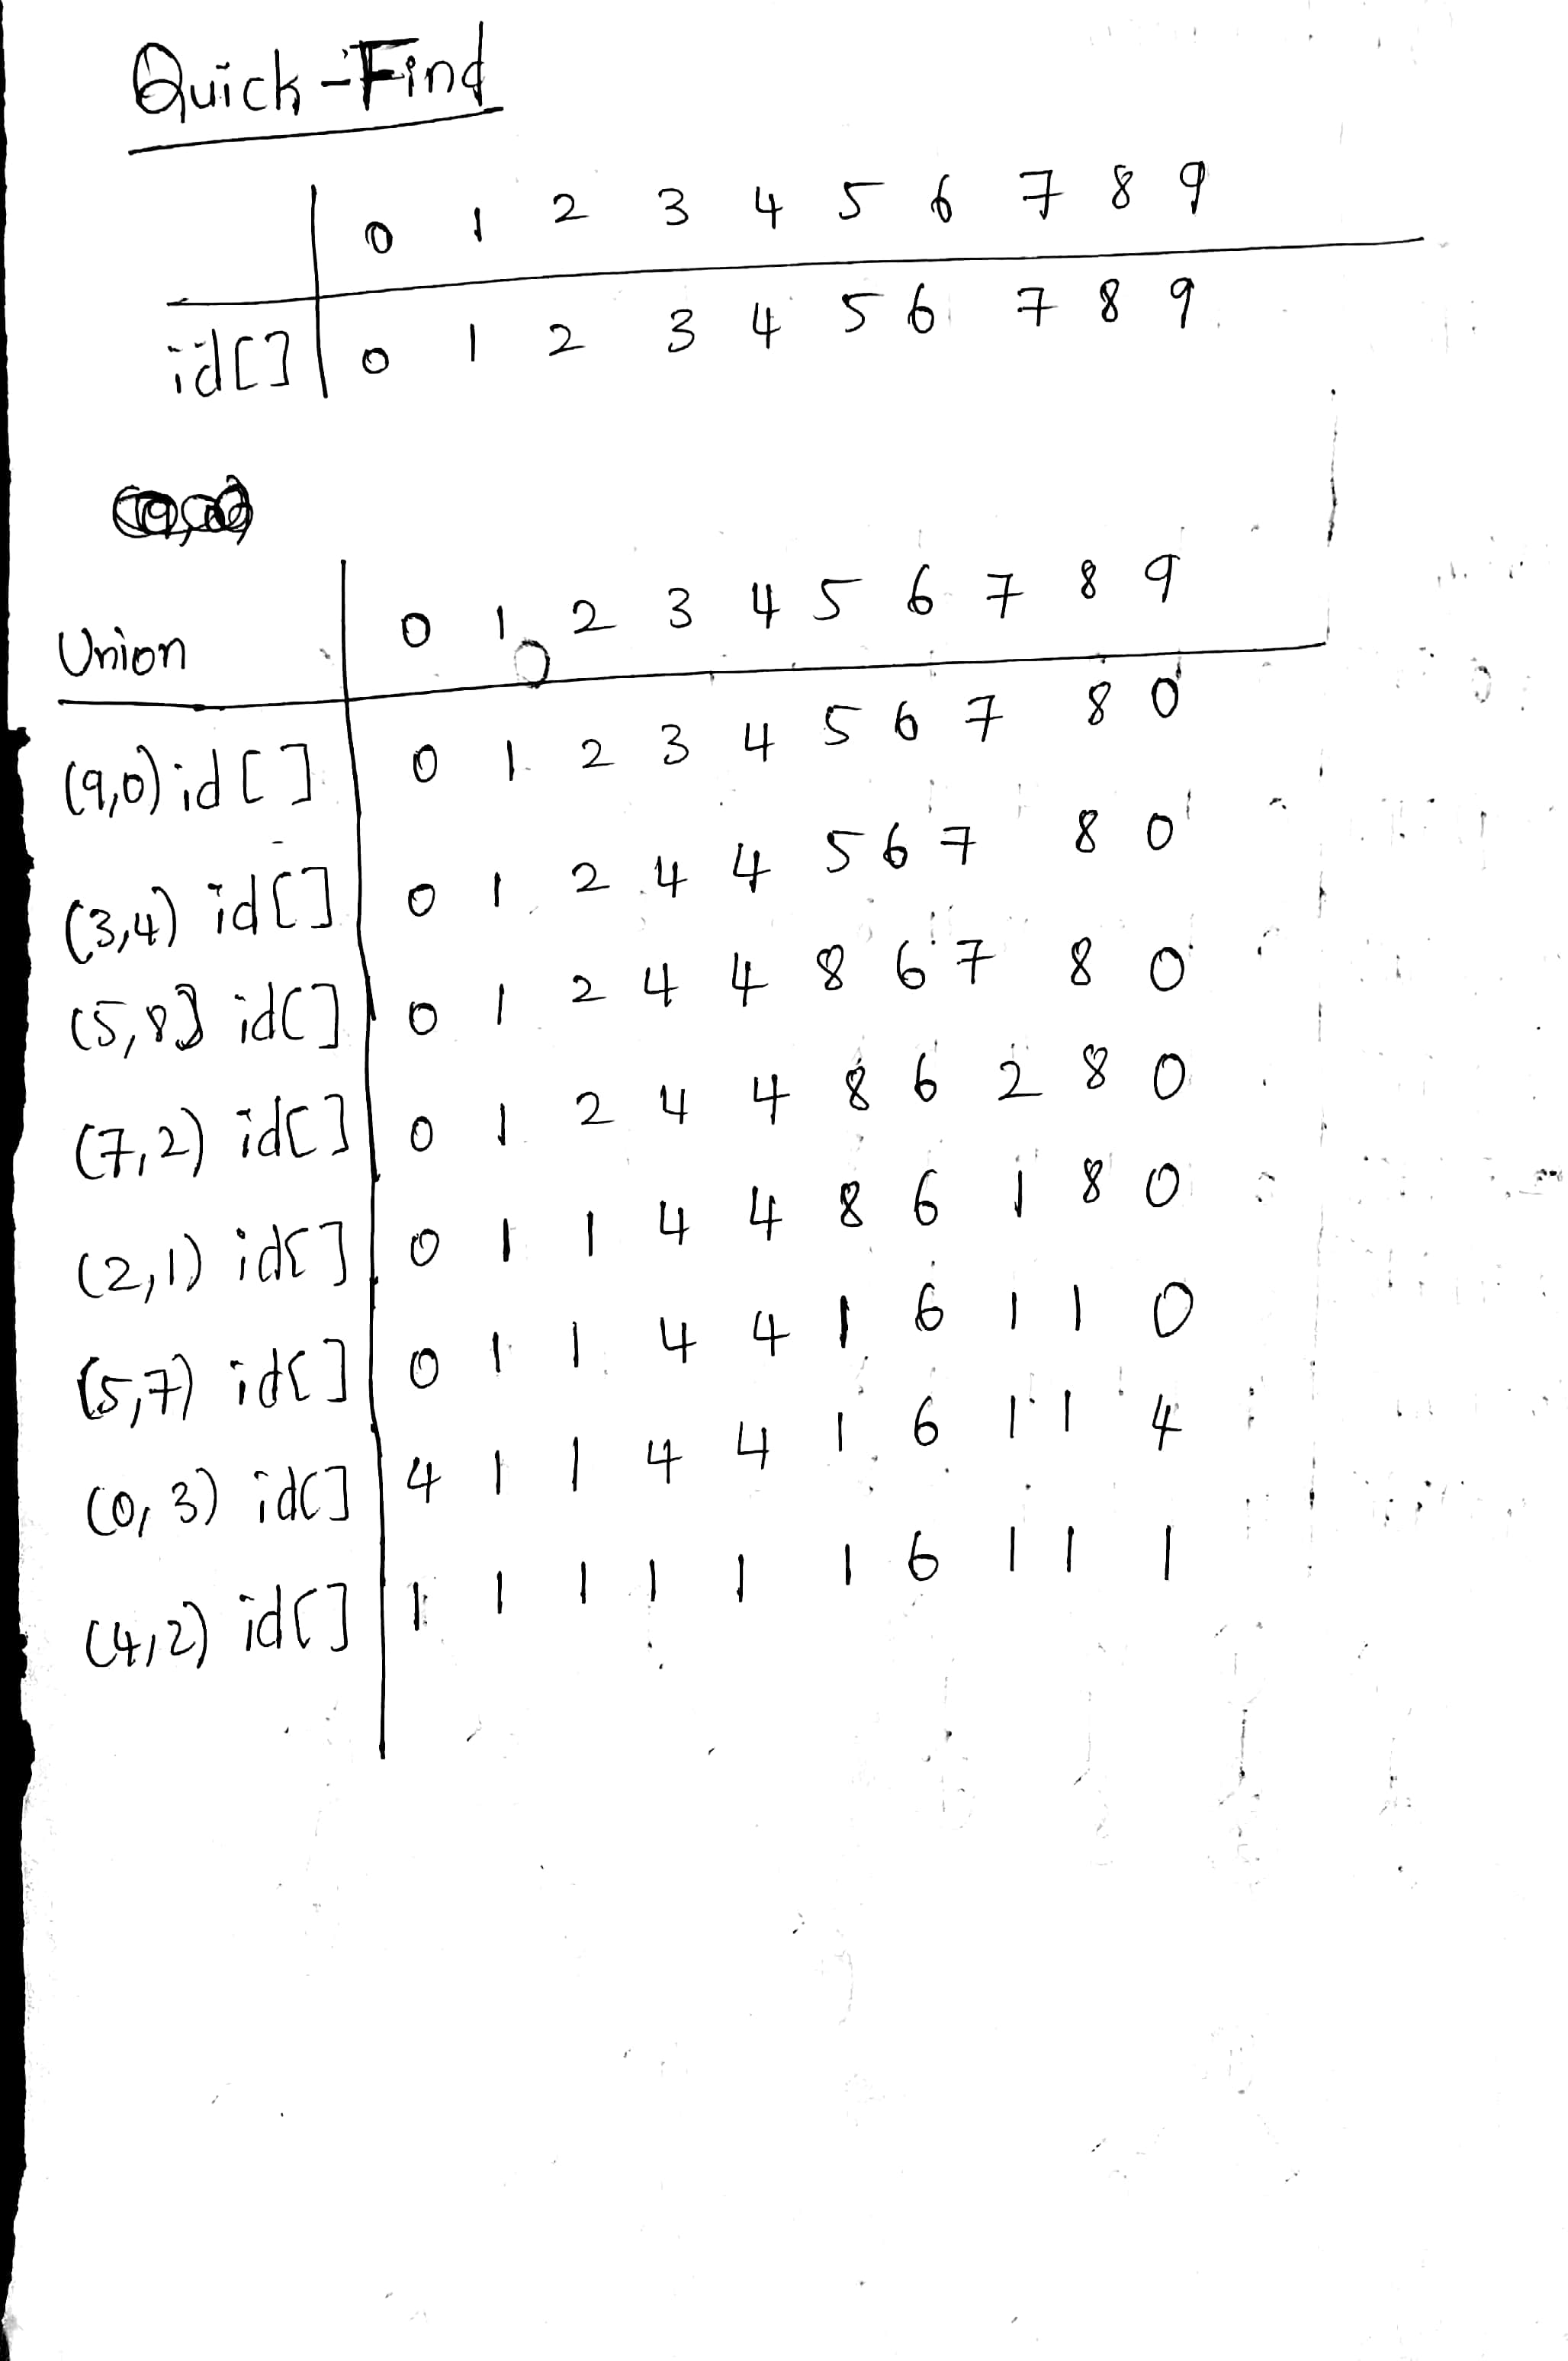 Quick-Find
0 1 2 3 4 5 6 7 8 9
id[] 0 1 2 3 4 5 6 7 8 9
Union 0 1 2 3 4 5 6 7 8 9
(9,0) id[] 0 1 2 3 4 5 6 7 8 0
(3,4) id[] 0 1 2 4 4 5 6 7 8 0
(5,8) id[] 0 1 2 4 4 8 6 7 8 0
(7,2) id[] 0 1 2 4 4 8 6 2 8 0
(2,1) id[] 0 1 1 4 4 8 6 1 8 0
(5,7) id[] 0 1 1 4 4 1 6 1 1 0
(0,3) id[] 4 1 1 4 4 1 6 1 1 4
(4,2) id[] 1 1 1 1 1 1 6 1 1 1